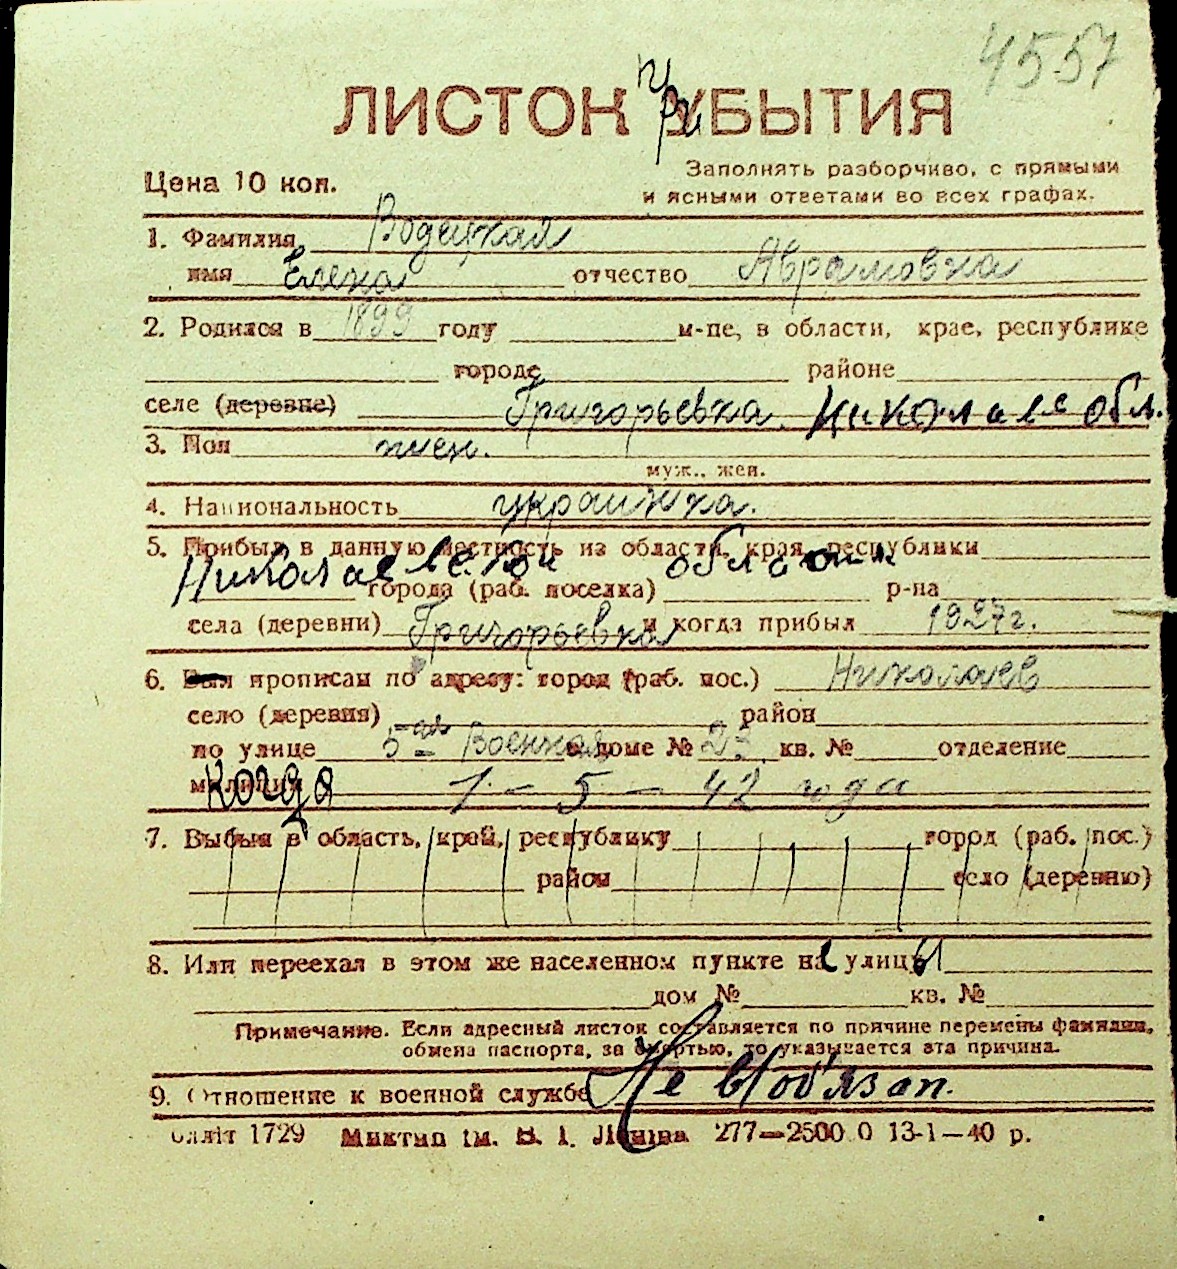 4557
ЛИСТОК прибЫТИЯ
Цена 10 коп.
Заполнять разборчиво, с прямыми
и ясными ответами во всех графах.
1. Фамилия Водецкая
имя Елена отчество Аврамовна
2. Родился в 1899 году м-це, в области, крае, республике
городе районе
селе (деревне) Григорьевка. Николаев обл.
3. Пол жен.
муж., жен.
4. Национальность украинка.
5. Прибыл в данную местность из области, края, республики
Николаевской области
города (раб. поселка) р-на
села (деревни) Григорьевка и когда прибыл 1927г.
6. Был прописан по адресу: город (раб. пос.) Николаев
село (деревня) район
по улице 5-ая Военная в доме № 23 кв. № отделение
милиции когда 1-5-42 года
7. Выбыл в область, край, республику город (раб. пос.)
район село (деревню)
8. Или переехал в этом же населенном пункте на улицу
дом № кв. №
Примечание. Если адресный листок составляется по причине перемены фамилии,
обмена паспорта, за смертью, то указывается эта причина.
9. Отношение к военной службе Не в/об'язан.
лліт 1729 Миктип ім. В. І. Леніна 277—2500 0 13-1—40 р.